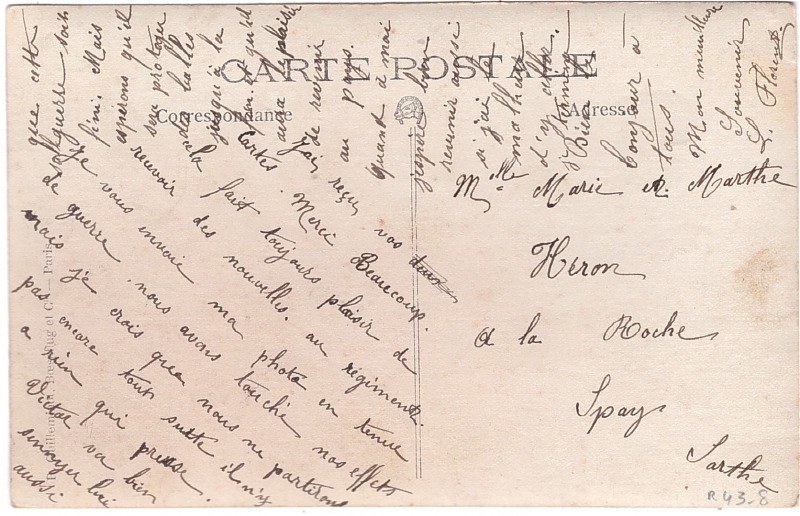 CARTE POSTALE
Correspondance
Adresse
J'ai reçu vos deux
Cartes. Merci Beaucoup.
cela fait toujours plaisir de
recevoir des nouvelles. au régiment.
Je vous envoie ma photo en tenue
de guerre. nous avons touché nos effets
mais je crois que nous ne partirons
pas encore tout suite il n'y
a rien qui presse.
Victor va bien
aussi
que cette
guerre soit
fini. Mais
esperons qu'il
sera protéger
des balles
jusqu'à la
fin. et qu'il
aura le plaisir
de revenir
au pays.
quand a moi
j'espère bien
revenir aussi
si j'ai le
malheur
d'y aller.
Je termine
Bien
bonjour à
tous.
Mon meilleur
Souvenir
L. Florent
Melle Marie et Marthe
Héron
à la Roche
Spay
Sarthe
R 43-8